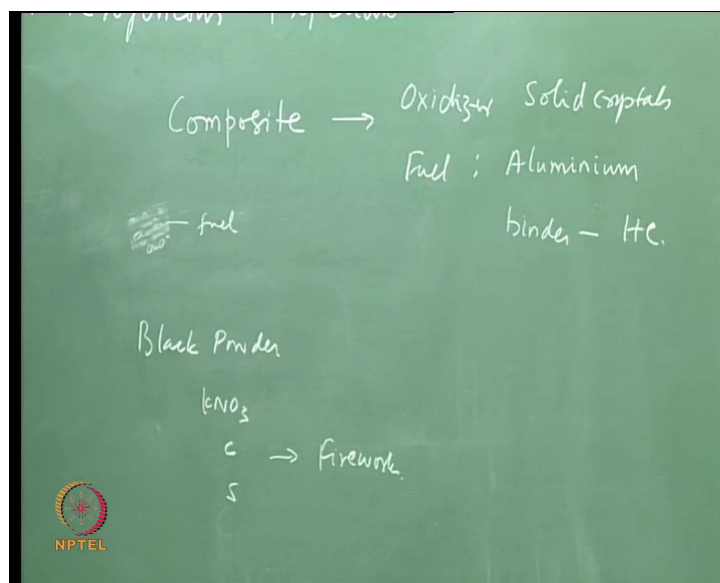 Composite → Oxidizer Solid crystals
Fuel : Aluminium
fuel
binder — HC.
Black Powder
KNO3
C → Firework.
S
NPTEL